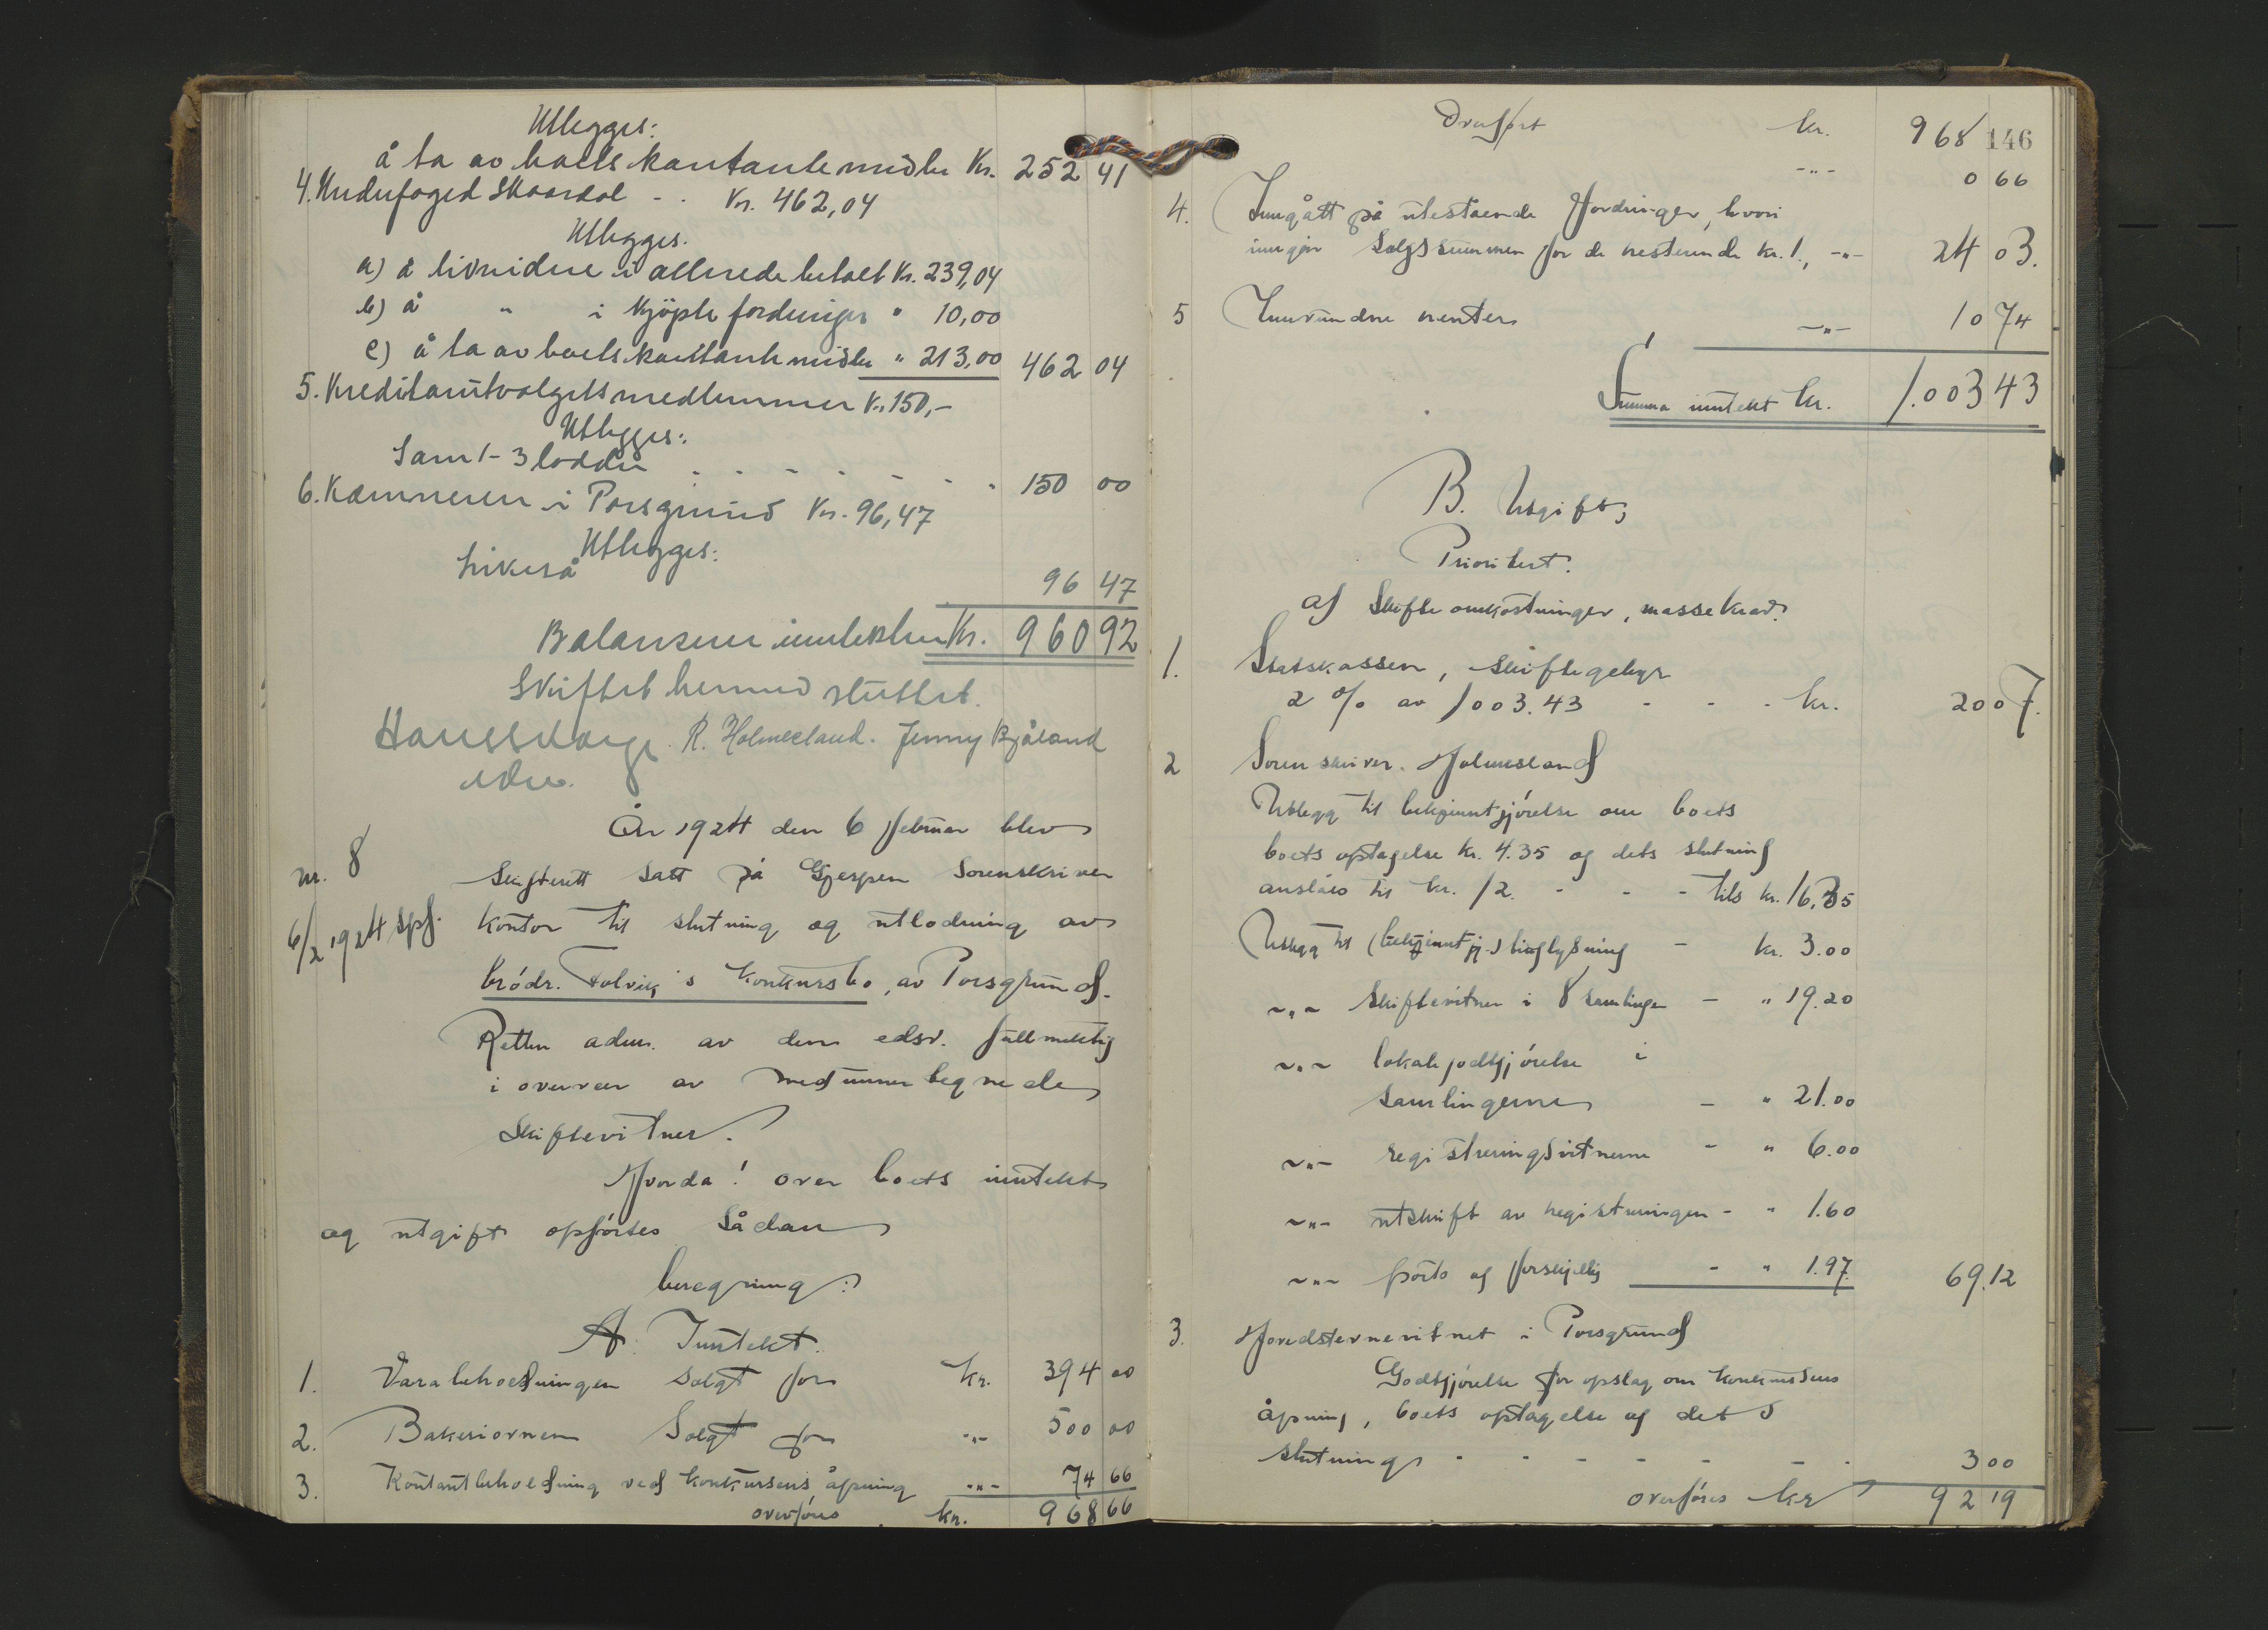 Utlegges:
å ta av boets kontante midler Kr. 252 41
4. Underfoged Skaardal - . Kr. 462,04
Utlegges.
a) å likvidere i allerede betalt Kr. 239,04
b) å " i kjöpte fordringer " 10,00
c) å ta av boets kontante midler " 213,00 462 04
5. Kreditorutvalgets medlemmer Kr. 150,-
Utlegges:
Som 1-3 loddn . . - - - - . 150 00
6. Kæmneren i Porsgrund Kr. 96,47
Utlegges:
Likeså 96 47
Balanserer inntekten Kr. 960 92
Skiftet hermed sluttet.
R. Holmesland. Jenny Bjåland
År 1924 den 6 februar blev
nr. 8 skifterett satt på Gjerpen sorenskriver
6/2 1924 spf. kontor til slutning og utlodning av
brödr. Holvik's konkursbo, av Porsgrund.
Retten adm. av den edsv. fullmektig
i overvær av medunnertegnede
skiftevitner.
Hvorda! over boets inntekt
og utgift opförtes sådan
beregning:
A. Inntekt.
1. Varebeholdningen solgt for kr. 394 00
2. Bakeriovnen solgt for -"- 500 00
3. Kontantbeholdning ved konkursens åpning -"- 74 66
overföres kr. 968 66
Overfört kr. 968 146
-"- 0 66
4. Inngått på utestående fordringer, hvori
inngår salgssummen for de resterende kr. 1., -"- 24 03.
5 Innvundne renter -"- 10 74
Summa inntekt kr. 1.003 43
B. Utgift,
Prioritert.
a) Skifteomkostninger, massekrav.
1. Statskassen, skiftegebyr
2 % av 1003.43 - - - kr. 20 07.
2 Sorenskriver Holmesland
Utlegg til bekjenntgjörelse om boets
boets optagelse kr. 4.35 og dets slutning
anslåes til kr. 12. - - - tils kr. 16,35
Utlegg til (bekjenntgj.) tinglysning - kr. 3.00
-"- skiftevitner i 8 samlinger - " 19.20
-"- lokalegodtgjörelse i
samlingerne - " 21.00
-"- registreringsvitnerne - " 6.00
-"- utskrift av registreringen - " 1.60
-"- porto og forskjellig - " 1.97 69.12
3. Hovedstevnevitnet i Porsgrund
Godtgjörelse for opslag om konkursens
åpning, boets optagelse og dets
slutning - - - - - - . 3 00
overföres kr 92 19